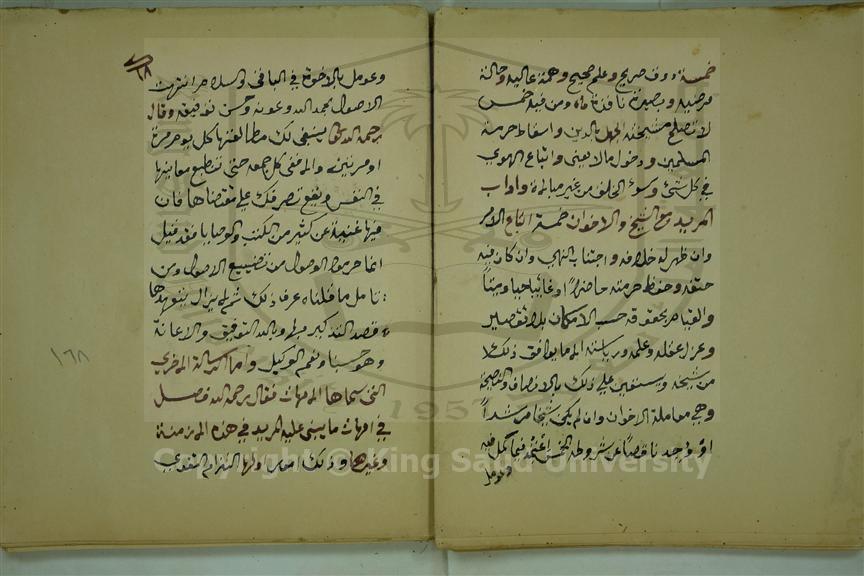 خمسة ذوق صريح وعلم صحيح وهمة عالية وحالة
مرضية وبصيرة نافذة ومن فيه خمس
لا تصلح مشيخته الجهل بالدين واسقاط حرمة
المسلمين ودخول ما لا يعني واتباع الهوي
في كل شئ وسوء الخلق من غير مبالاة واداب
المريد مع الشيخ والاخوان خمسة اتباع الامر
وان ظهر له خلافه واجتناب النهي وان كان فيه
حتفه وحفظ حرمته حاضرا وغائبا حيا وميتا
والقيام بحقوقه حسب الامكان بلا تقصير
وعزل عقله وعلمه ورياسته الا ما يوافق ذلك
من شيخه ويستعين علي ذلك بالانصاف والنصيحة
وهي معاملة الاخوان وان لم يكن شيخا مرشدا
او وجد ناقصا عن شروطه الخمس اعتمد فيما كمل فيه
وعومل
١٦٨
وعومل بالاخوة في الباقي والسلام انتهت
الاصول بحمد الله وعونه وحسن توفيقه وقال
رحمه الله ينبغي لك مطالعتها كل يوم مرة
او مرتين والا ففي كل جمعة حتي تنطبع معانيها
في النفس ويقع تصرفك علي مقتضاها فان
فيها غنية عن كثير من الكتب والوصايا فقد قيل
انما حرموا الوصول من تضييع الاصول ومن
تامل ما قلناه عرف ذلك ثم لم يزال يتعهدها
قصد التذكير بها وبالله التوفيق والاعانة
وهو حسبنا ونعم الوكيل واما الرسالة الاخري
التي سماها الامهات فقال رحمه الله فصل
في امهات ما يبني عليه المريد في هذه الازمنة
وغيرها وذلك امور اولها التزام التقوي
١٦٨
1957
Copyright © King Saud University